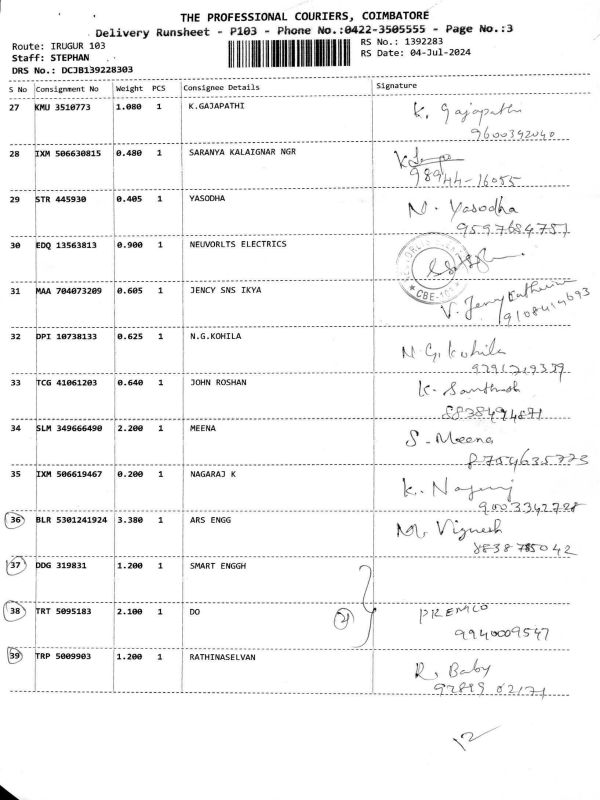 THE PROFESSIONAL COURIERS, COIMBATORE
Delivery Runsheet - P103 - Phone No.:0422-3505555 - Page No.:3
Route: IRUGUR 103
RS No.: 1392283
Staff: STEPHAN
RS Date: 04-Jul-2024
DRS No.: DCJB139228303
S No Consignment No Weight PCS Consignee Details Signature
27 KMU 3510773 1.080 1 K.GAJAPATHI K. Gajapathi
9600342040
28 IXM 506630815 0.480 1 SARANYA KALAIGNAR NGR
98944-16055
29 STR 445930 0.405 1 YASODHA N. Yasodha
9597684751
30 EDQ 13563813 0.900 1 NEUVORLTS ELECTRICS
CBE-103
31 MAA 704073209 0.605 1 JENCY SNS IKYA V. Jency
32 DPI 10738133 0.625 1 N.G.KOHILA N.G. Kohila
33 TCG 41061203 0.640 1 JOHN ROSHAN K. Santhosh
8838494871
34 SLM 349666490 2.200 1 MEENA S. Meena
8754635773
35 IXM 506619467 0.200 1 NAGARAJ K K. Nagaraj
9003342728
36 BLR 5301241924 3.380 1 ARS ENGG M. Vignesh
8838785042
37 DDG 319831 1.200 1 SMART ENGGH
38 TRT 5095183 2.100 1 DO 21 PREMCO
9940009547
39 TRP 5009903 1.200 1 RATHINASELVAN R. Baby
97899 02171
12